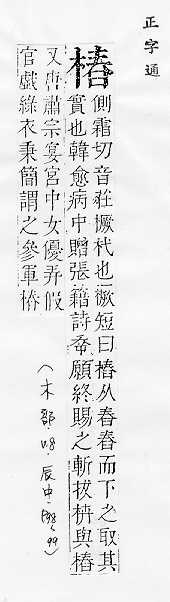 正字通
樁
側霜切音莊橛杙也橛短曰樁从舂舂而下之取其
實也韓愈病中贈張籍詩希願終賜之斬拔枿與樁
又唐肅宗宴宮中女優弄假
官戲綠衣秉簡謂之參軍樁
(木部
辰中